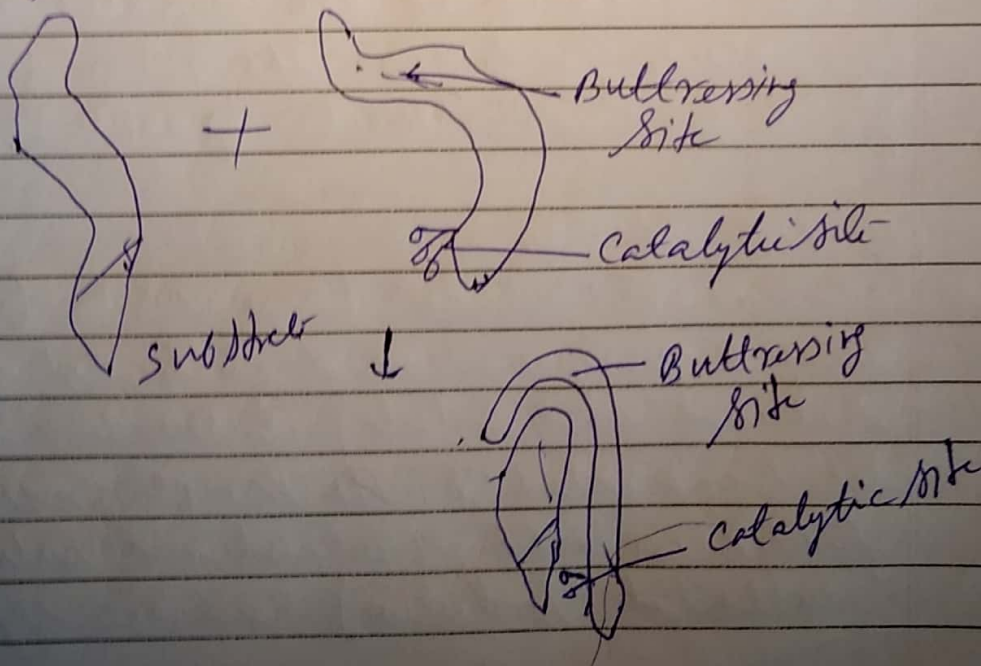 +
Buttressing
site
Catalytic site
Substrate
↓
Buttressing
site
Catalytic site